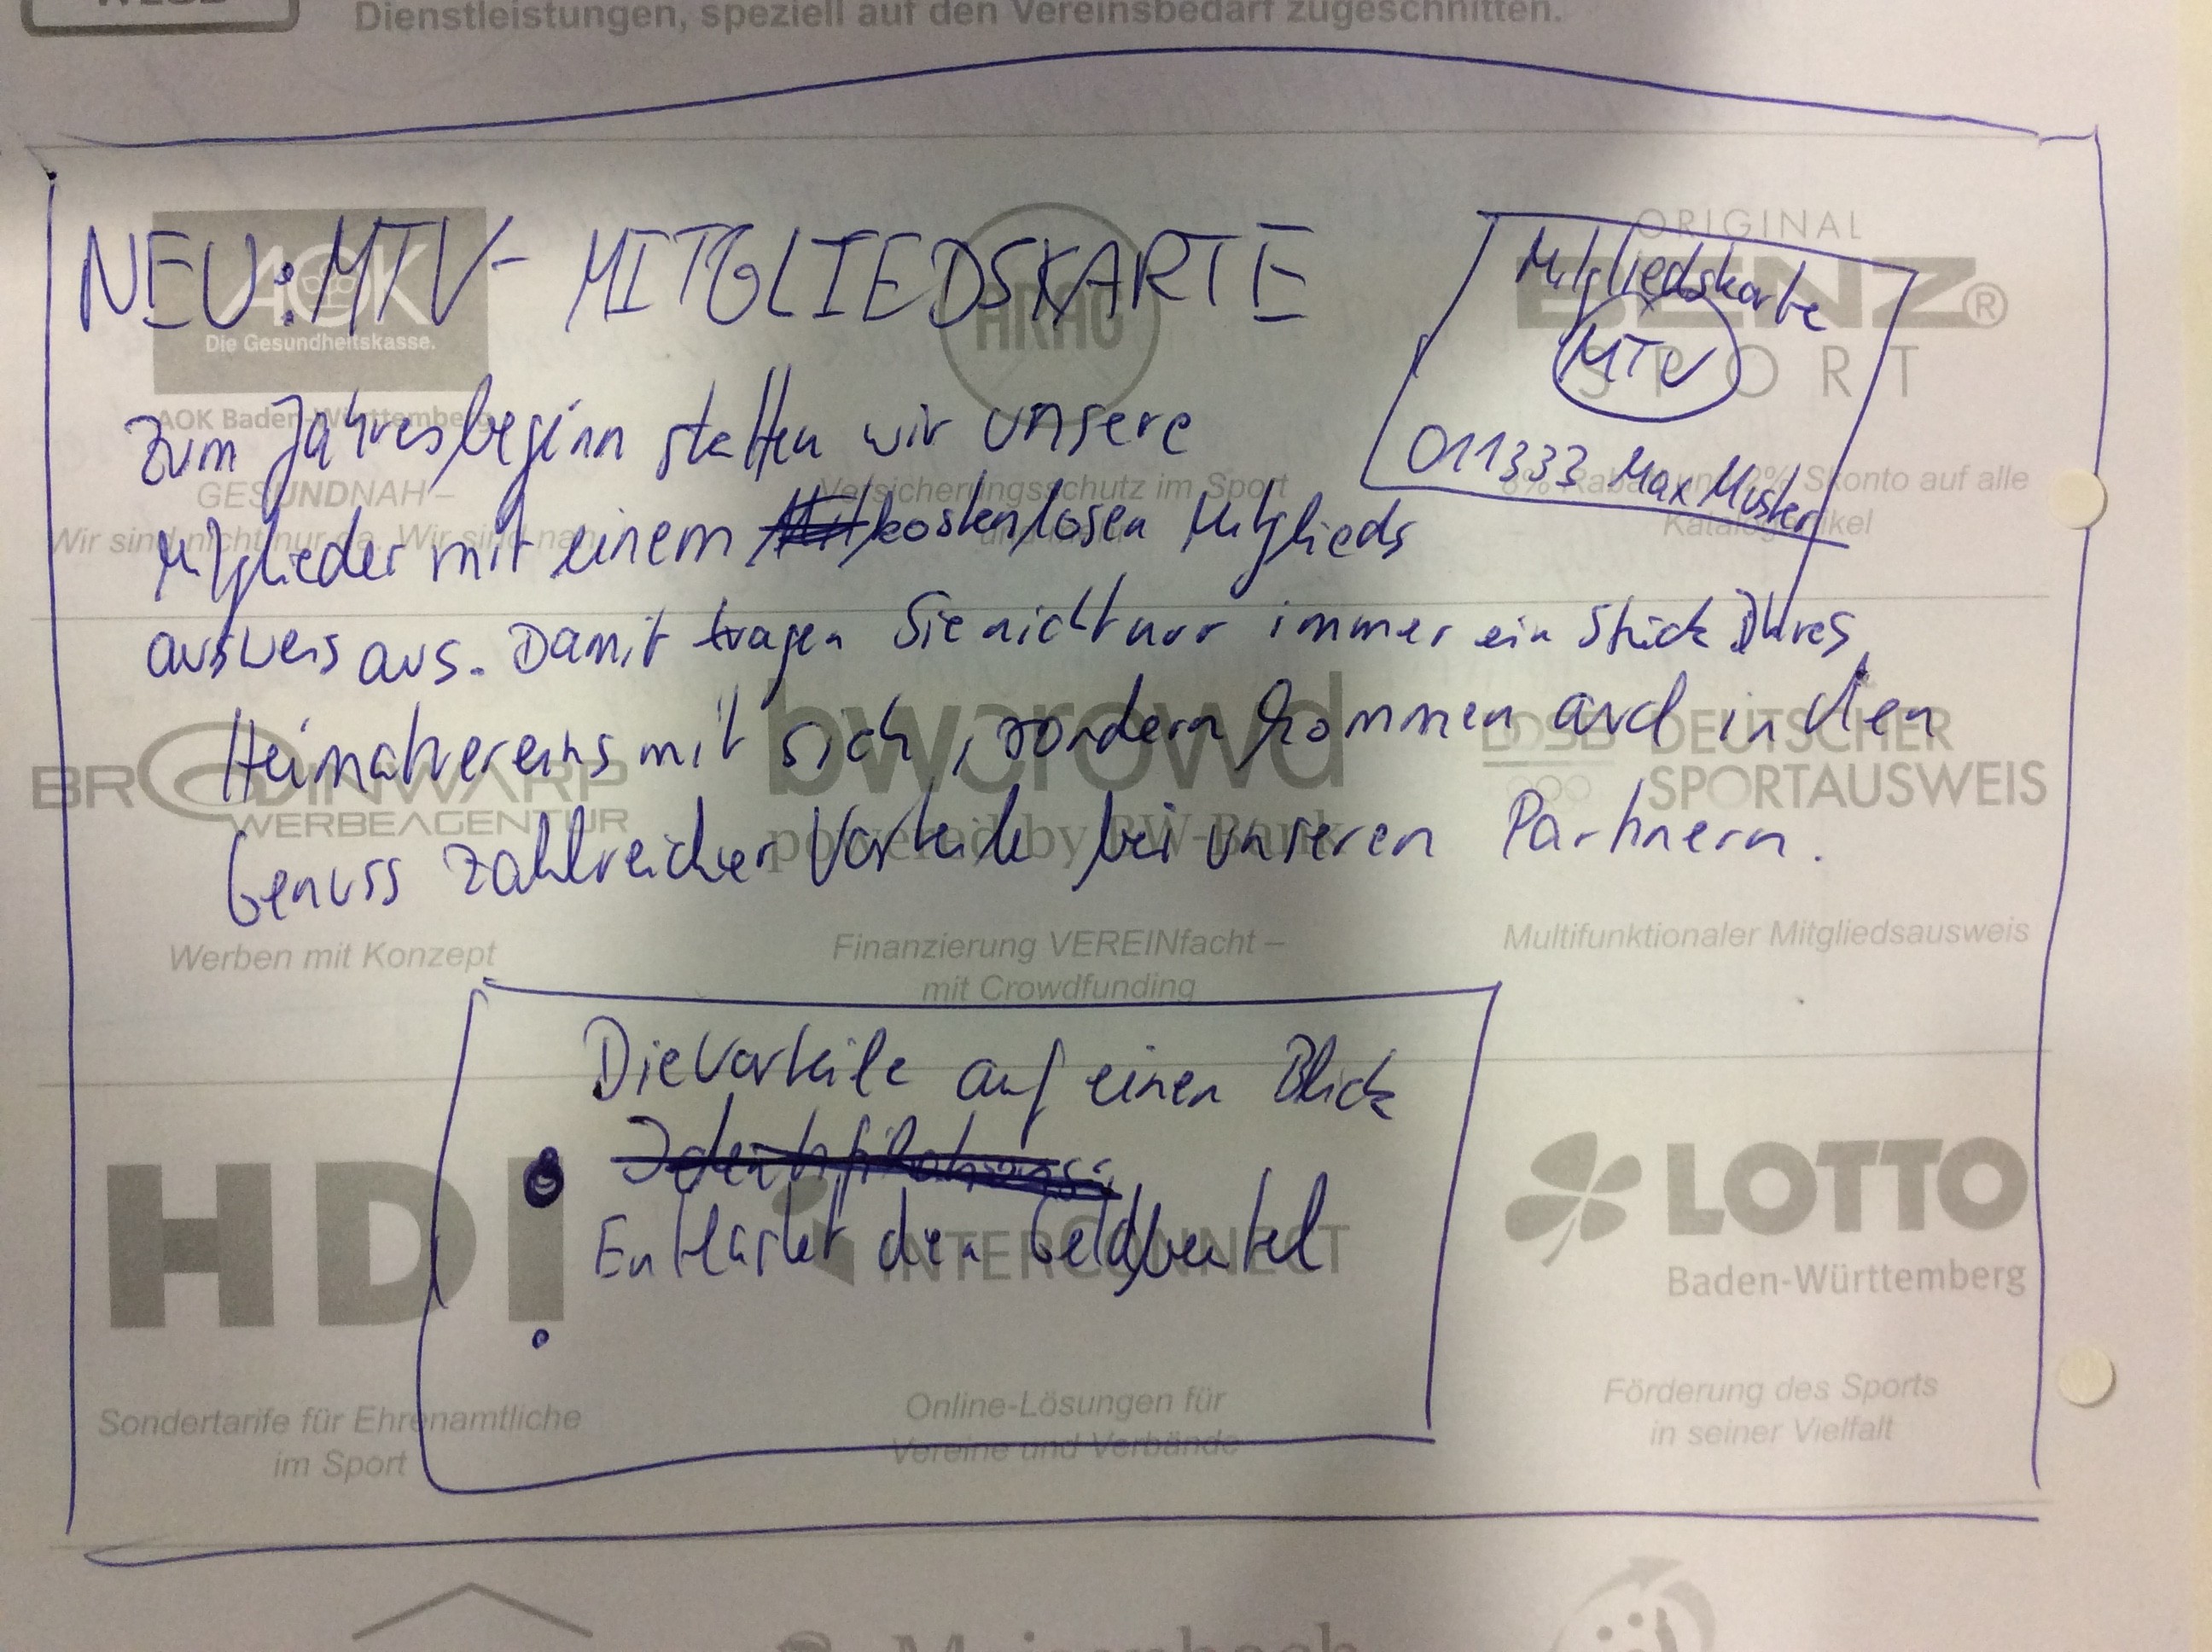 Dienstleistungen, speziell auf den Vereinsbedarf zugeschnitten.
NEU: MTV- MITGLIEDSKARTE
Mitgliedskarte
MTV
011333 Max Muster
Zum Jahresbeginn statten wir unsere
Mitglieder mit einem kostenlosen Mitglieds
ausweis aus. Damit tragen Sie nicht nur immer ein Stück Ihres
Heimatvereins mit sich, sondern kommen auch in den
Genuss zahlreicher Vorteile bei unseren Partnern.
Die Vorteile auf einen Blick
Identifikations
Entlastet den Geldbeutel
AOK
Die Gesundheitskasse.
AOK Baden-Württemberg
GESUNDNAH –
Wir sind nicht nur da. Wir sind nah.
ARAG
Versicherungsschutz im Sport
ORIGINAL
BENZ®
SPORT
8% Rabatt und 2% Skonto auf alle
Katalogartikel
BRODINWARP
WERBEAGENTUR
Werben mit Konzept
bwcrowd
powered by BW-Bank
Finanzierung VEREINfacht –
mit Crowdfunding
DOSB DEUTSCHER
SPORTAUSWEIS
Multifunktionaler Mitgliedsausweis
HDI
Sondertarife für Ehrenamtliche
im Sport
INTERCONNECT
Online-Lösungen für
Vereine und Verbände
LOTTO
Baden-Württemberg
Förderung des Sports
in seiner Vielfalt